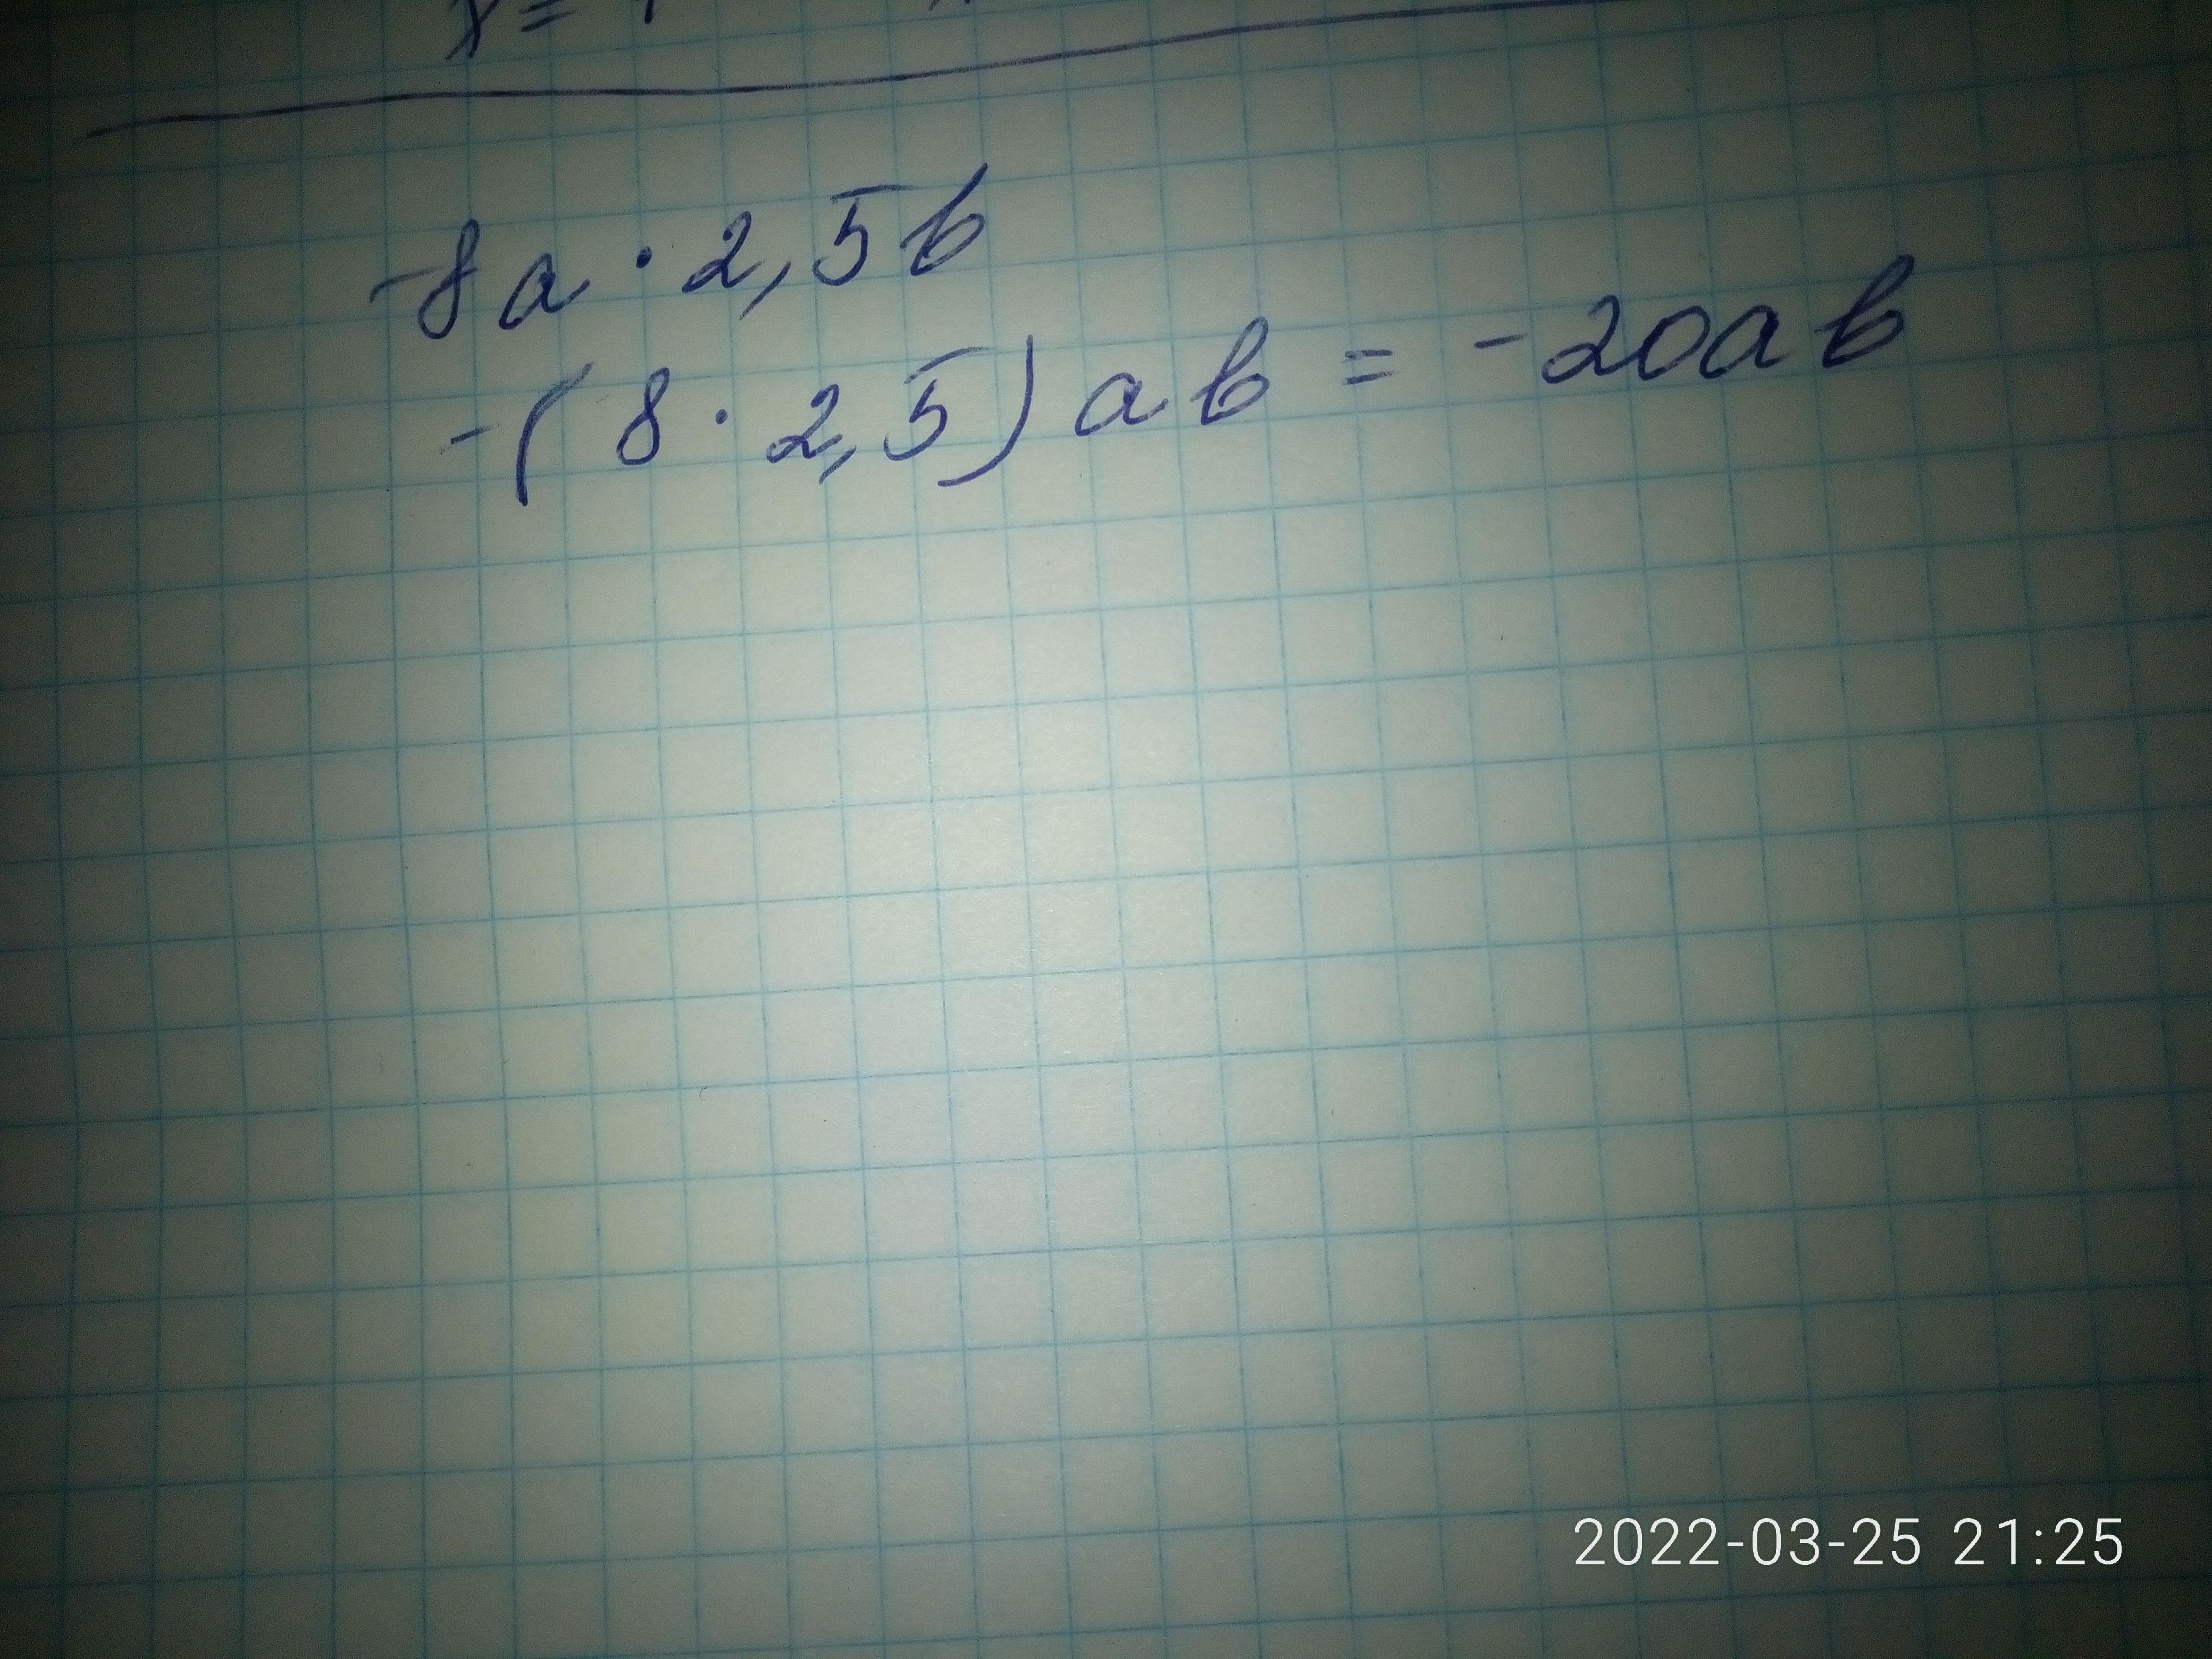 x =
-8a · 2,5b
-(8 · 2,5) ab = -20ab
2022-03-25 21:25